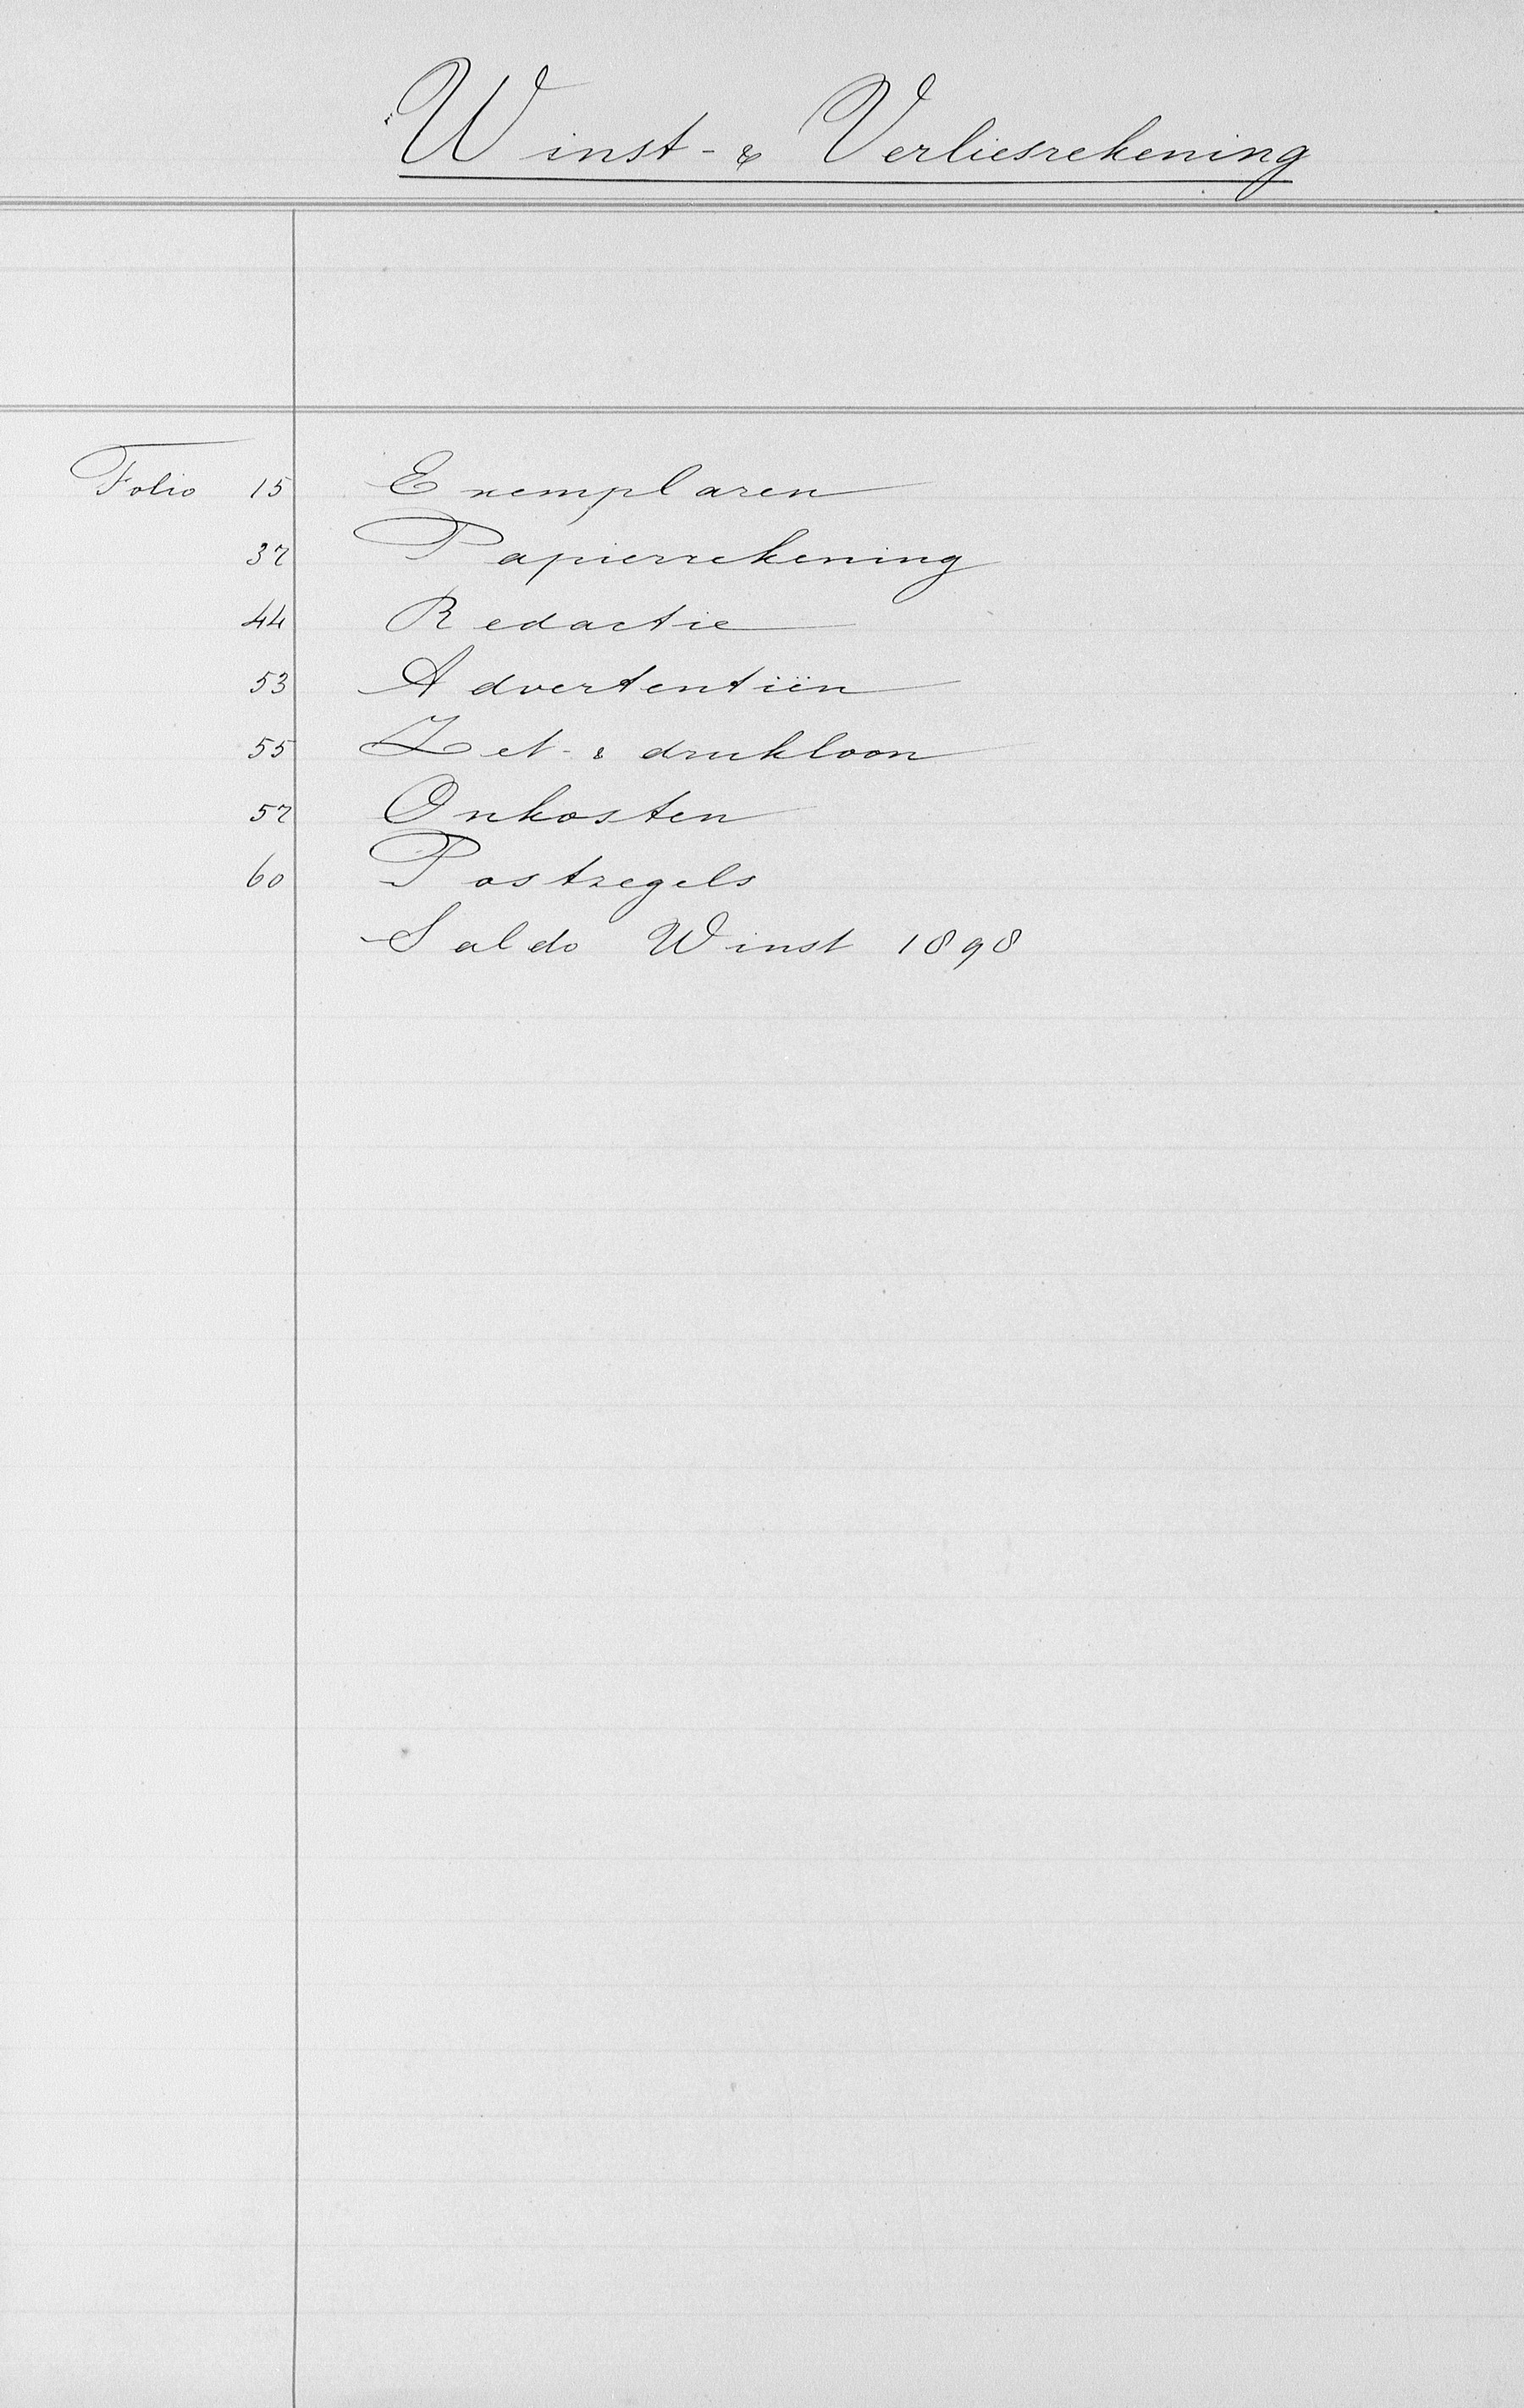 Winst- & Verliesrekening
Folio 15 Exemplaren
37 Papierrekening
44 Redactie
53 Advertentiën
55 Zet- & drukloon
57 Onkosten
60 Postzegels
Saldo Winst 1898